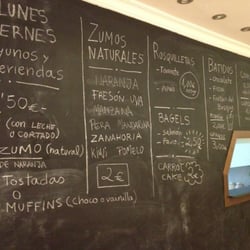 LUNES
ERNES
yunos y
eriendas
'50€-
(con LECHE
o CORTADO)
ZUMO (natural)
DE NARANJA
Tostadas
O
MUFFINS (choco o vainilla)
ZUMOS
NATURALES
NARANJA
FRESÓN UVA
MANZANA
PERA MANDARINA
ZANAHORIA
KIWI POMELO
2€
ROSQUILLETAS
- Tomate
BAGELS
- Salmón
- Pavo
CARROT
CAKE
BATIDOS
- Chocolate
- Fresa